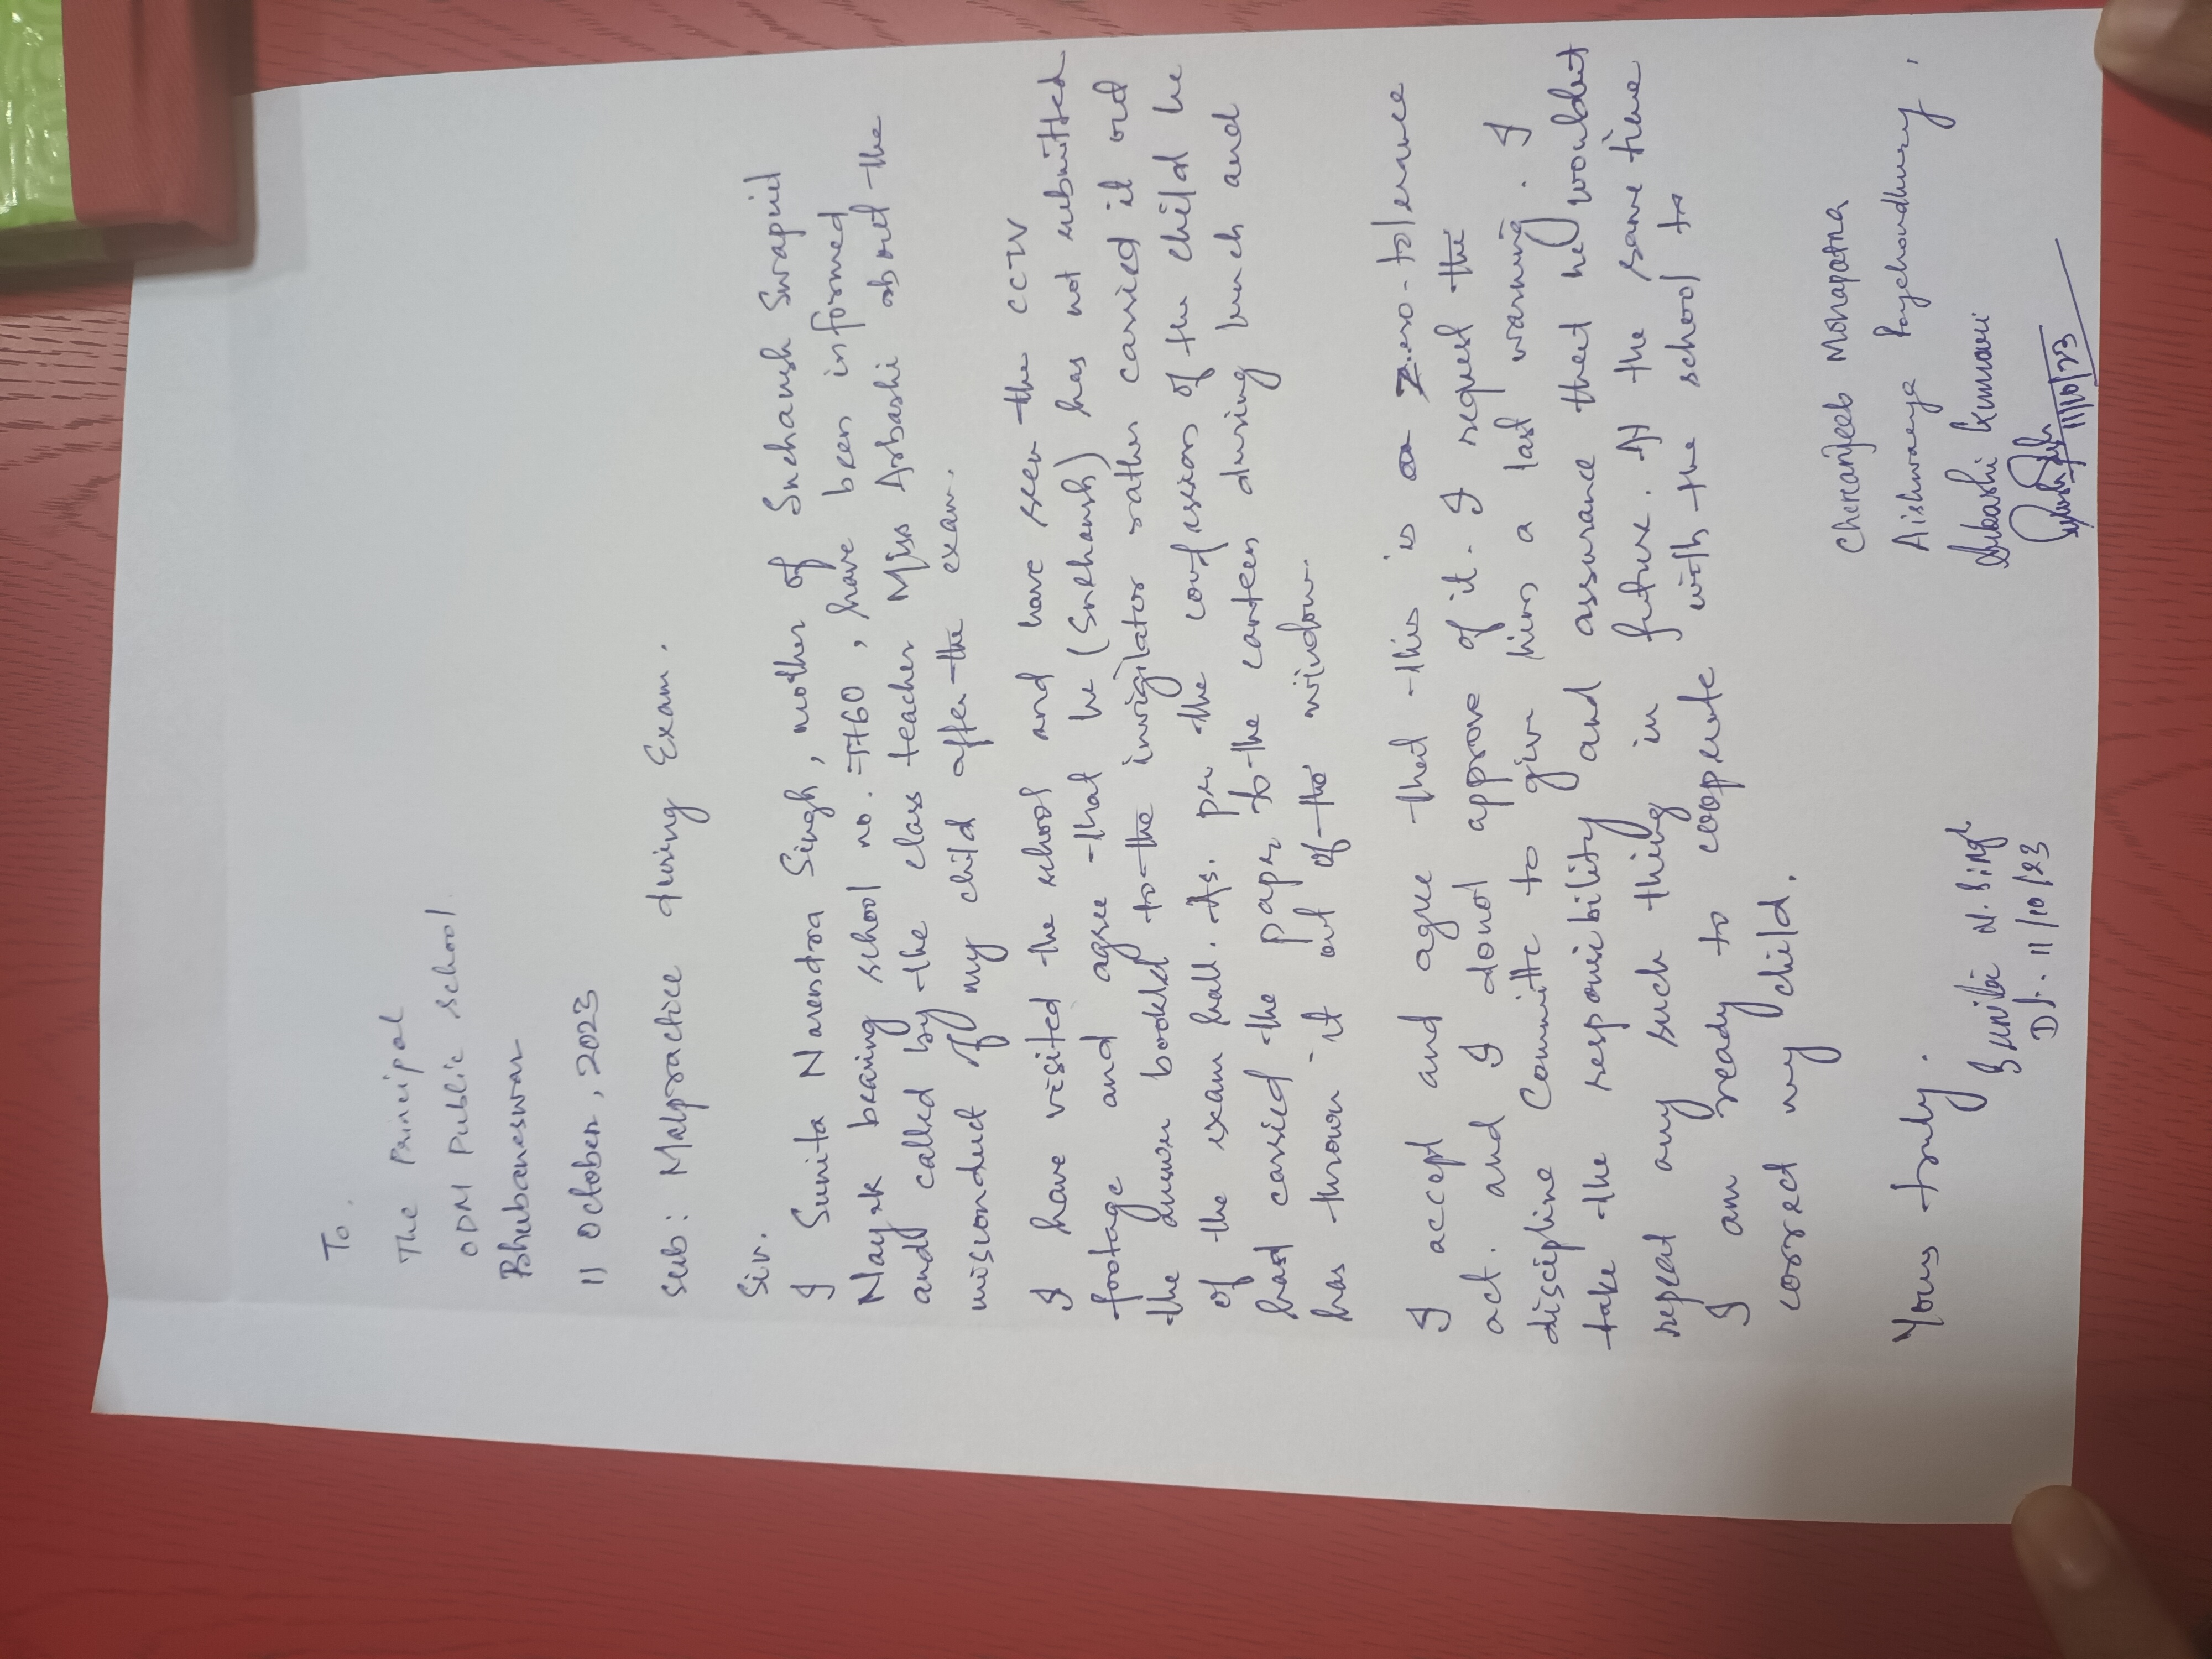 To,
The Principal
ODM Public School
Bhubaneswar
11 October, 2023
Sub: Malpractice during Exam.
Sir.
I Sunita Narendra Singh, mother of Sukhansh Swapnil
Nayak bearing school no. 7760, have been informed
and called by the class teacher Miss Arbashi about the
misconduct of my child after the exam.
I have visited the school and have seen the CCTV
footage and agree that he (Sukhansh) has not submitted
the answer booklet to the invigilator rather carried it out
of the exam hall. As. per the confession of the child he
had carried the paper to the canteen during lunch and
has thrown it out of the window.
I accept and agree that this is a Zero-tolerance
act. and I donot approve of it. I request the
discipline Committe to give him a last warning. I
take the responsibility and assurance that he wouldnt
repeat any such thing in future. At the same time
I am ready to cooperate with the school to
correct my child.
Yours truly.
Sunita N. Singh
Dt. 11/10/23
Chiranjeeb Mohapatra
Aishwarya Roychoudhury,
Arbashi Kumari
11/10/23